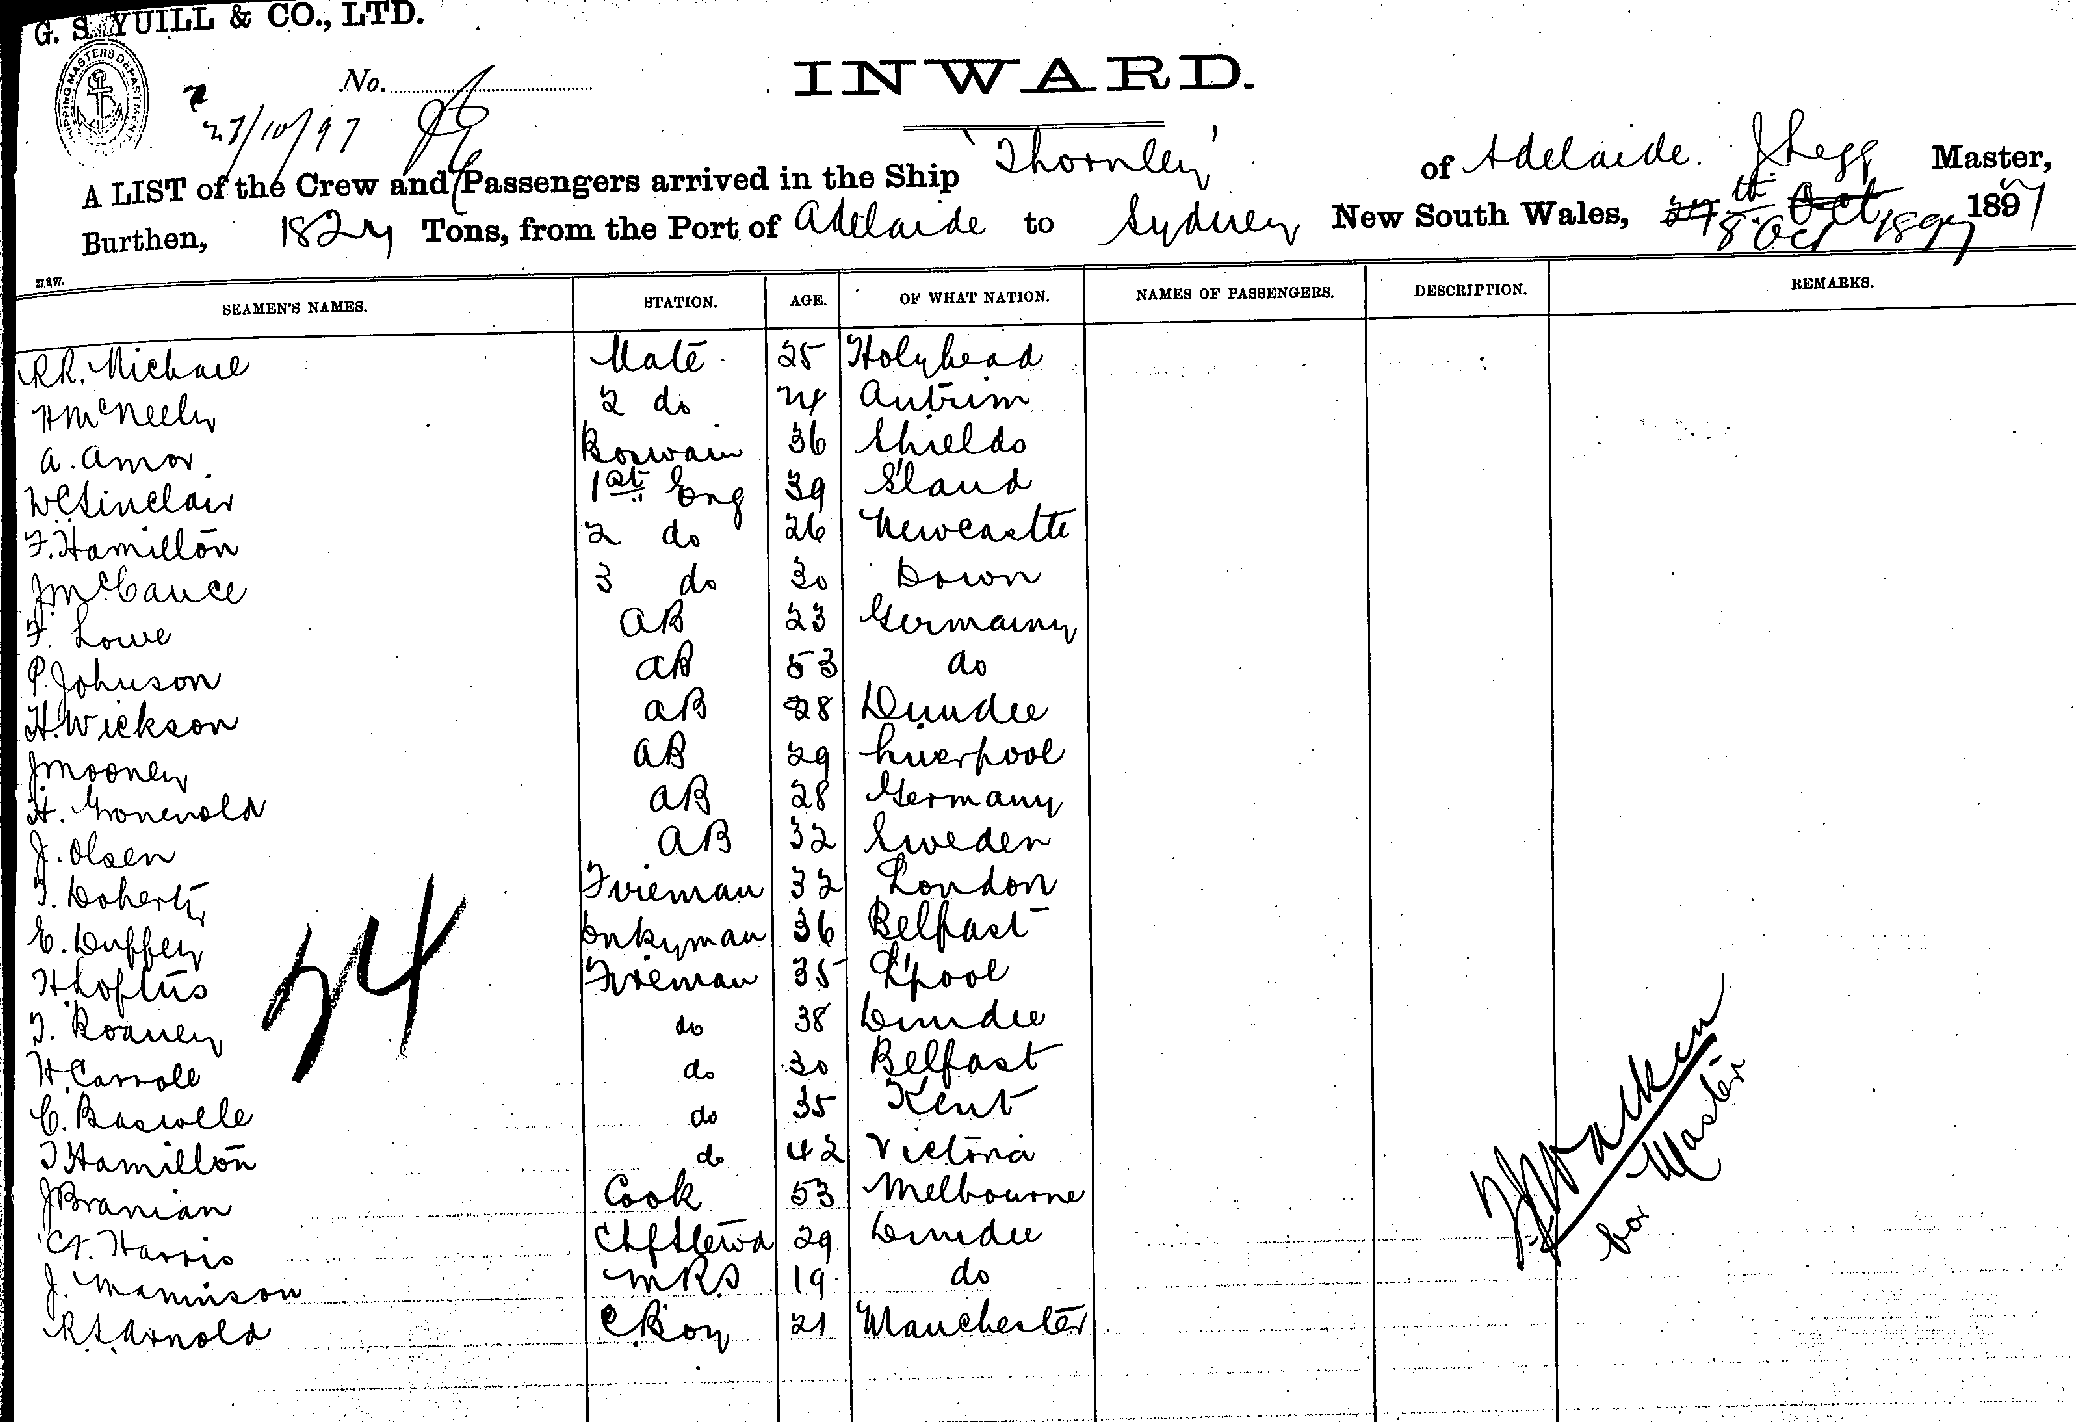 G. S. YUILL & CO., LTD.
SHIPPING MASTERS DEPARTMENT
No.
INWARD.
27/10/97
A LIST of the Crew and Passengers arrived in the Ship 'Thornley' of Adelaide. J Legg Master,
Burthen, 1824 Tons, from the Port of Adelaide to Sydney New South Wales, 8 Oct 1897 1897
N.S.W.
SEAMEN'S NAMES. STATION. AGE. OF WHAT NATION. NAMES OF PASSENGERS. DESCRIPTION. REMARKS.
R R. Michael Mate 25 Holyhead
H McNeely 2 do 24 Antrim
A. Amor Boswain 36 Shields
W C Sinclair 1st Eng 39 S'land
F. Hamilton 2 do 26 Newcastle
J McCance 3 do 30 Down
F. Lowe AB 23 Germany
P. Johnson AB 53 do
H. Wickson AB 28 Dundee
J Mooney AB 29 Liverpool
H. Gronewold AB 28 Germany
J. Olsen AB 32 Sweden
T. Doherty Fireman 32 London
E. Duffey Dnkyman 36 Belfast
H Loftus Fireman 35 L'pool
T. Roaney do 38 Dundee
H. Carroll do 30 Belfast
C. Baswelle do 35 Kent
T Hamilton do 42 Victoria
J Branian Cook 53 Melbourne
C. Harris Chf Stewd 29 Dundee
J. Maminson M R S 19 do
R. S. Arnold C Boy 21 Manchester
24
for Master